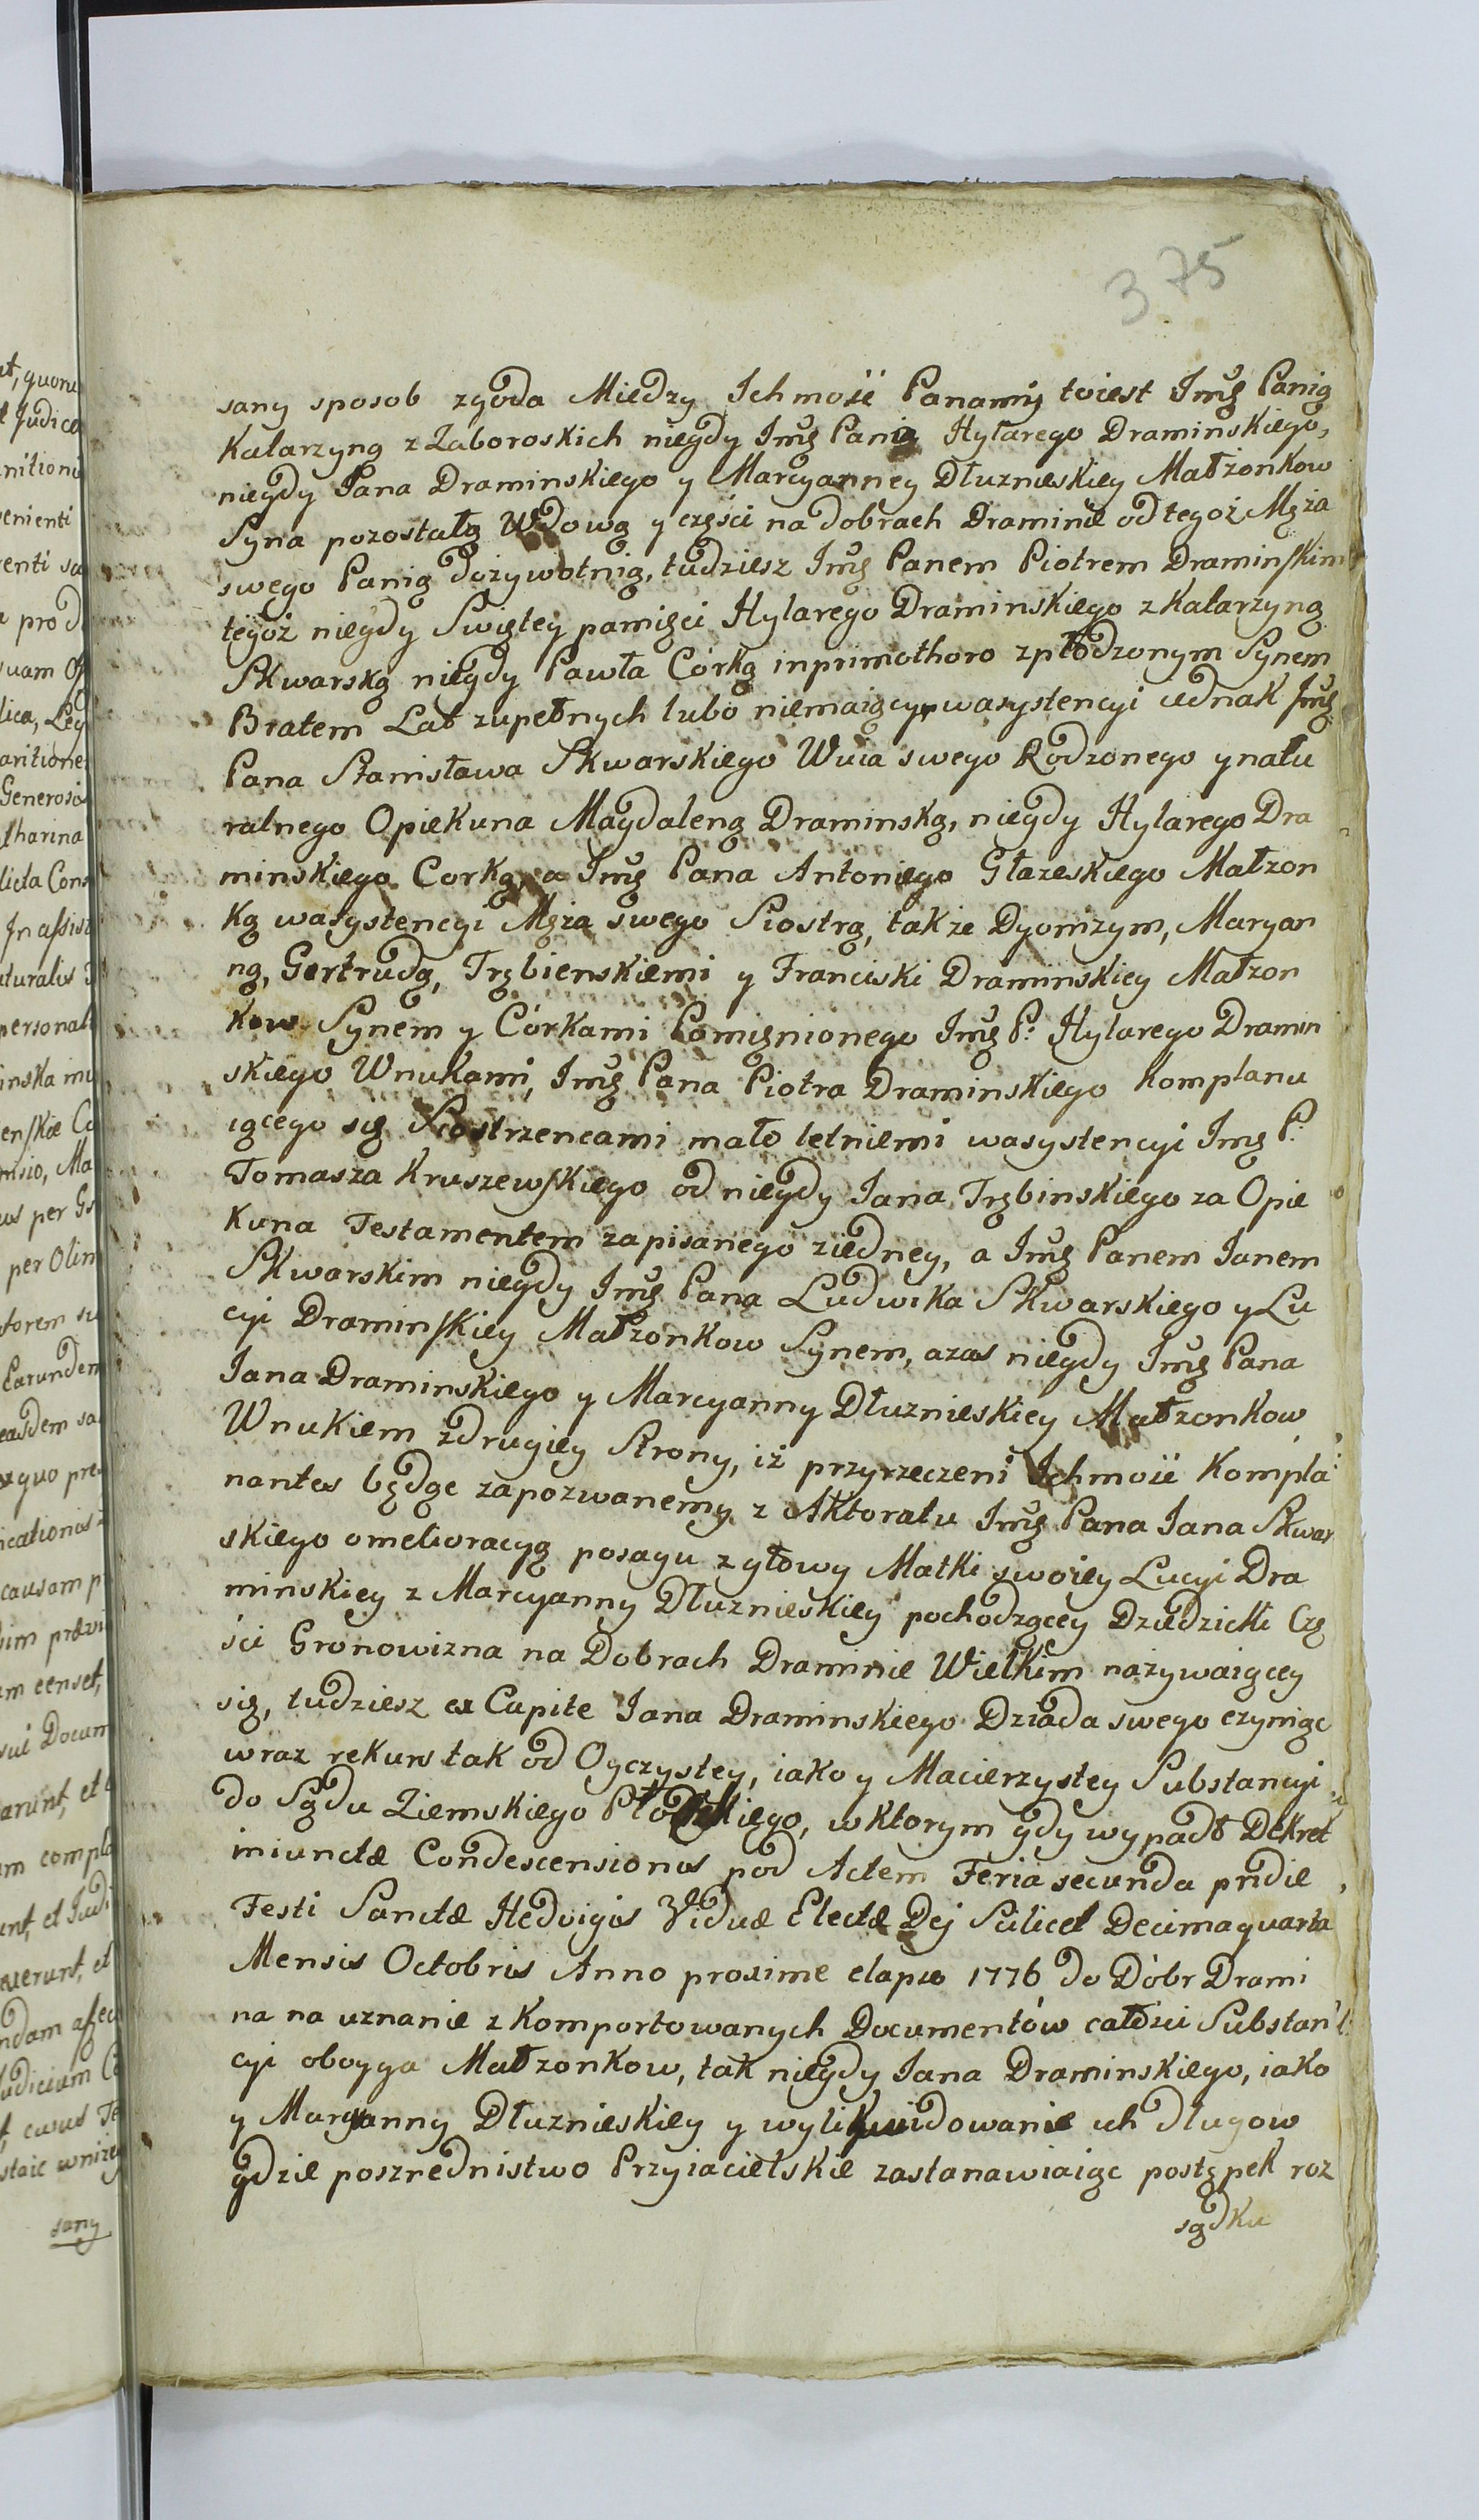 375
sany sposob zgoda Miedzy Ichmość Panamy toiest Jmę Panią
Katarzyną z Zaboroskich niegdy Jmę Panią Hylarego Draminskiego,
niegdy Jana Draminskiego y Marcyanney Dłuznieskiey Małżonkow
Syna pozostałą Wdową y części na dobrach Draminie od tegoż Męża
swego Panią dożywotnią, tudziesz Jmę Panem Piotrem Draminskim
tegoż niegdy Swiętey pamięci Hylarego Draminskiego z Katarzyną
Skwarską niegdy Pawła Córką inprimothoro zpłodzonym Synem
Bratem Lat zupełnych lubo niemaiącym wasystencyi iednak Jmę
Pana Stanisława Skwarskiego Wuia swego Rodzonego y natu
ralnego Opiekuna Magdaleną Draminską, niegdy Hylarego Dra
minskiego Corką, a Jmę Pana Antoniego Głazeskiego Małzon
ką wasystencyi Męża swego Siostrą, także Dyonizym, Maryan
ną, Gertrudą, Trębienskiemi y Franciski Draminskiey Małzon
kow Synem y Córkami Pomięnionego Jmę P. Hylarego Dramin
skiego Wnukami, Jmę Pana Piotra Draminskiego komplanu
iącego się Siostrzencami mało letniemi wasystencyi Jmę P.
Tomasza Kruszewskiego od niegdy Jana Trębinskiego za Opie
kuna Testamentem zapisanego ziedney, a Jmę Panem Janem
Skwarskim niegdy Jmę Pana Ludwika Skwarskiego y Lu
cyi Draminskiey Małzonkow Synem, azas niegdy Jmę Pana
Jana Draminskiego y Marcyanny Dłuznieskiey Małzonkow
Wnukiem zdrugiey Strony, iż przyrzeczeni Ichmość Kompla
nantes będąc zapozwanemy z Aktoratu Jmę Pana Jana Skwar
skiego omelioracyą posagu z głowy Matki swoiey Lucyi Dra
minskiey z Marcyanny Dłuznieskiey pochodzącey Dziedzicki Czę
ści Gronowizna na Dobrach Draminie Wielkim nazywaiącey
się, tudziesz ex Capite Jana Draminskiego Dziada swego czyniąc
wraz rekurs tak od Oyczystey, iako y Macierzystey Substancyi
do Sądu Ziemskiego Płockiego, wktorym gdy wypadł Dekret
iniunctæ Condescensionis pod Actem Feria secunda pridie
Festi Sanctæ Hedvigis Viduæ Electæ Dej Scilicet Decimaquarta
Mensis Octobris Anno proxime elapso 1776 do Dóbr Drami
na na uznanie z Komportowanych Documentów całości Substan
cyi oboyga Małzonkow, tak niegdy Jana Draminskiego, iako
y Maryanny Dłuznieskiey y wylikwidowanie ich długow
gdzie poszrednistwo Przyiacielskie zastanawiaiąc postępek roz
sądku